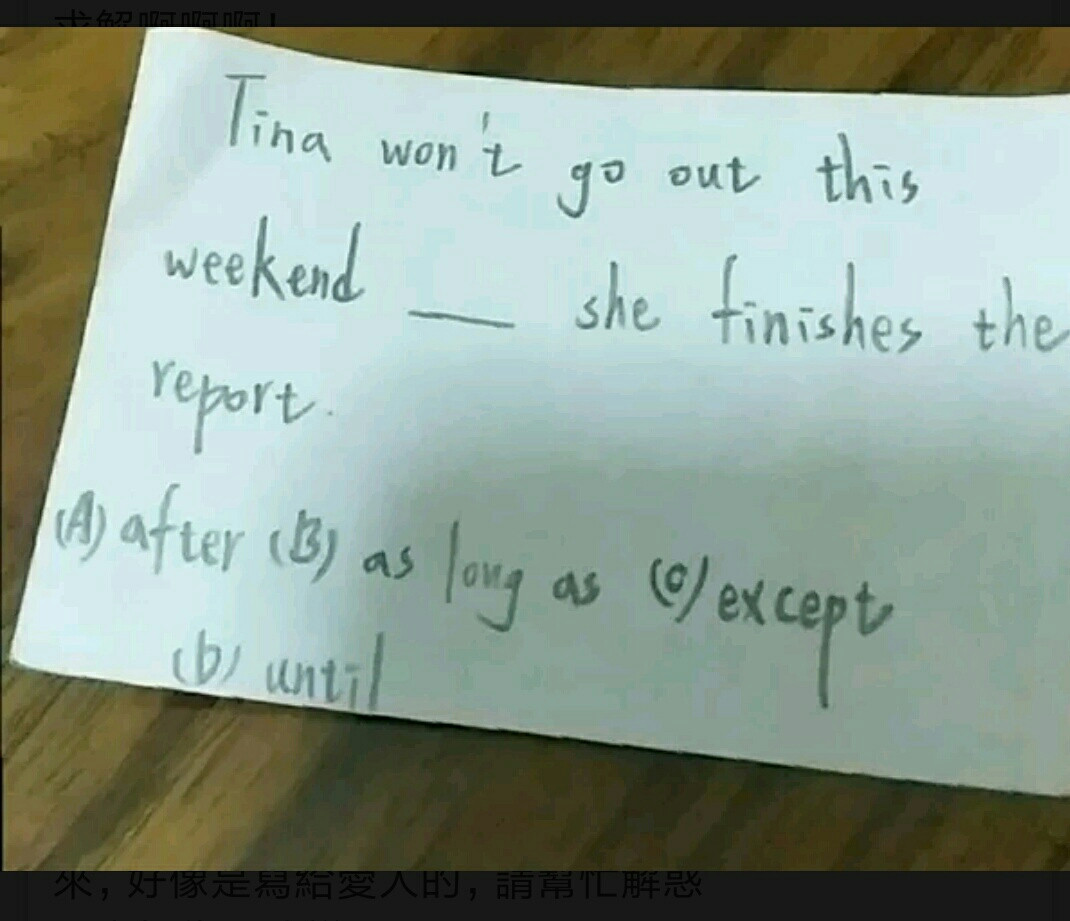 求解啊啊啊!
Tina won't go out this
weekend ___ she finishes the
report.
(A) after (B) as long as (C) except
(D) until
來, 好像是寫給愛人的, 請幫忙解惑